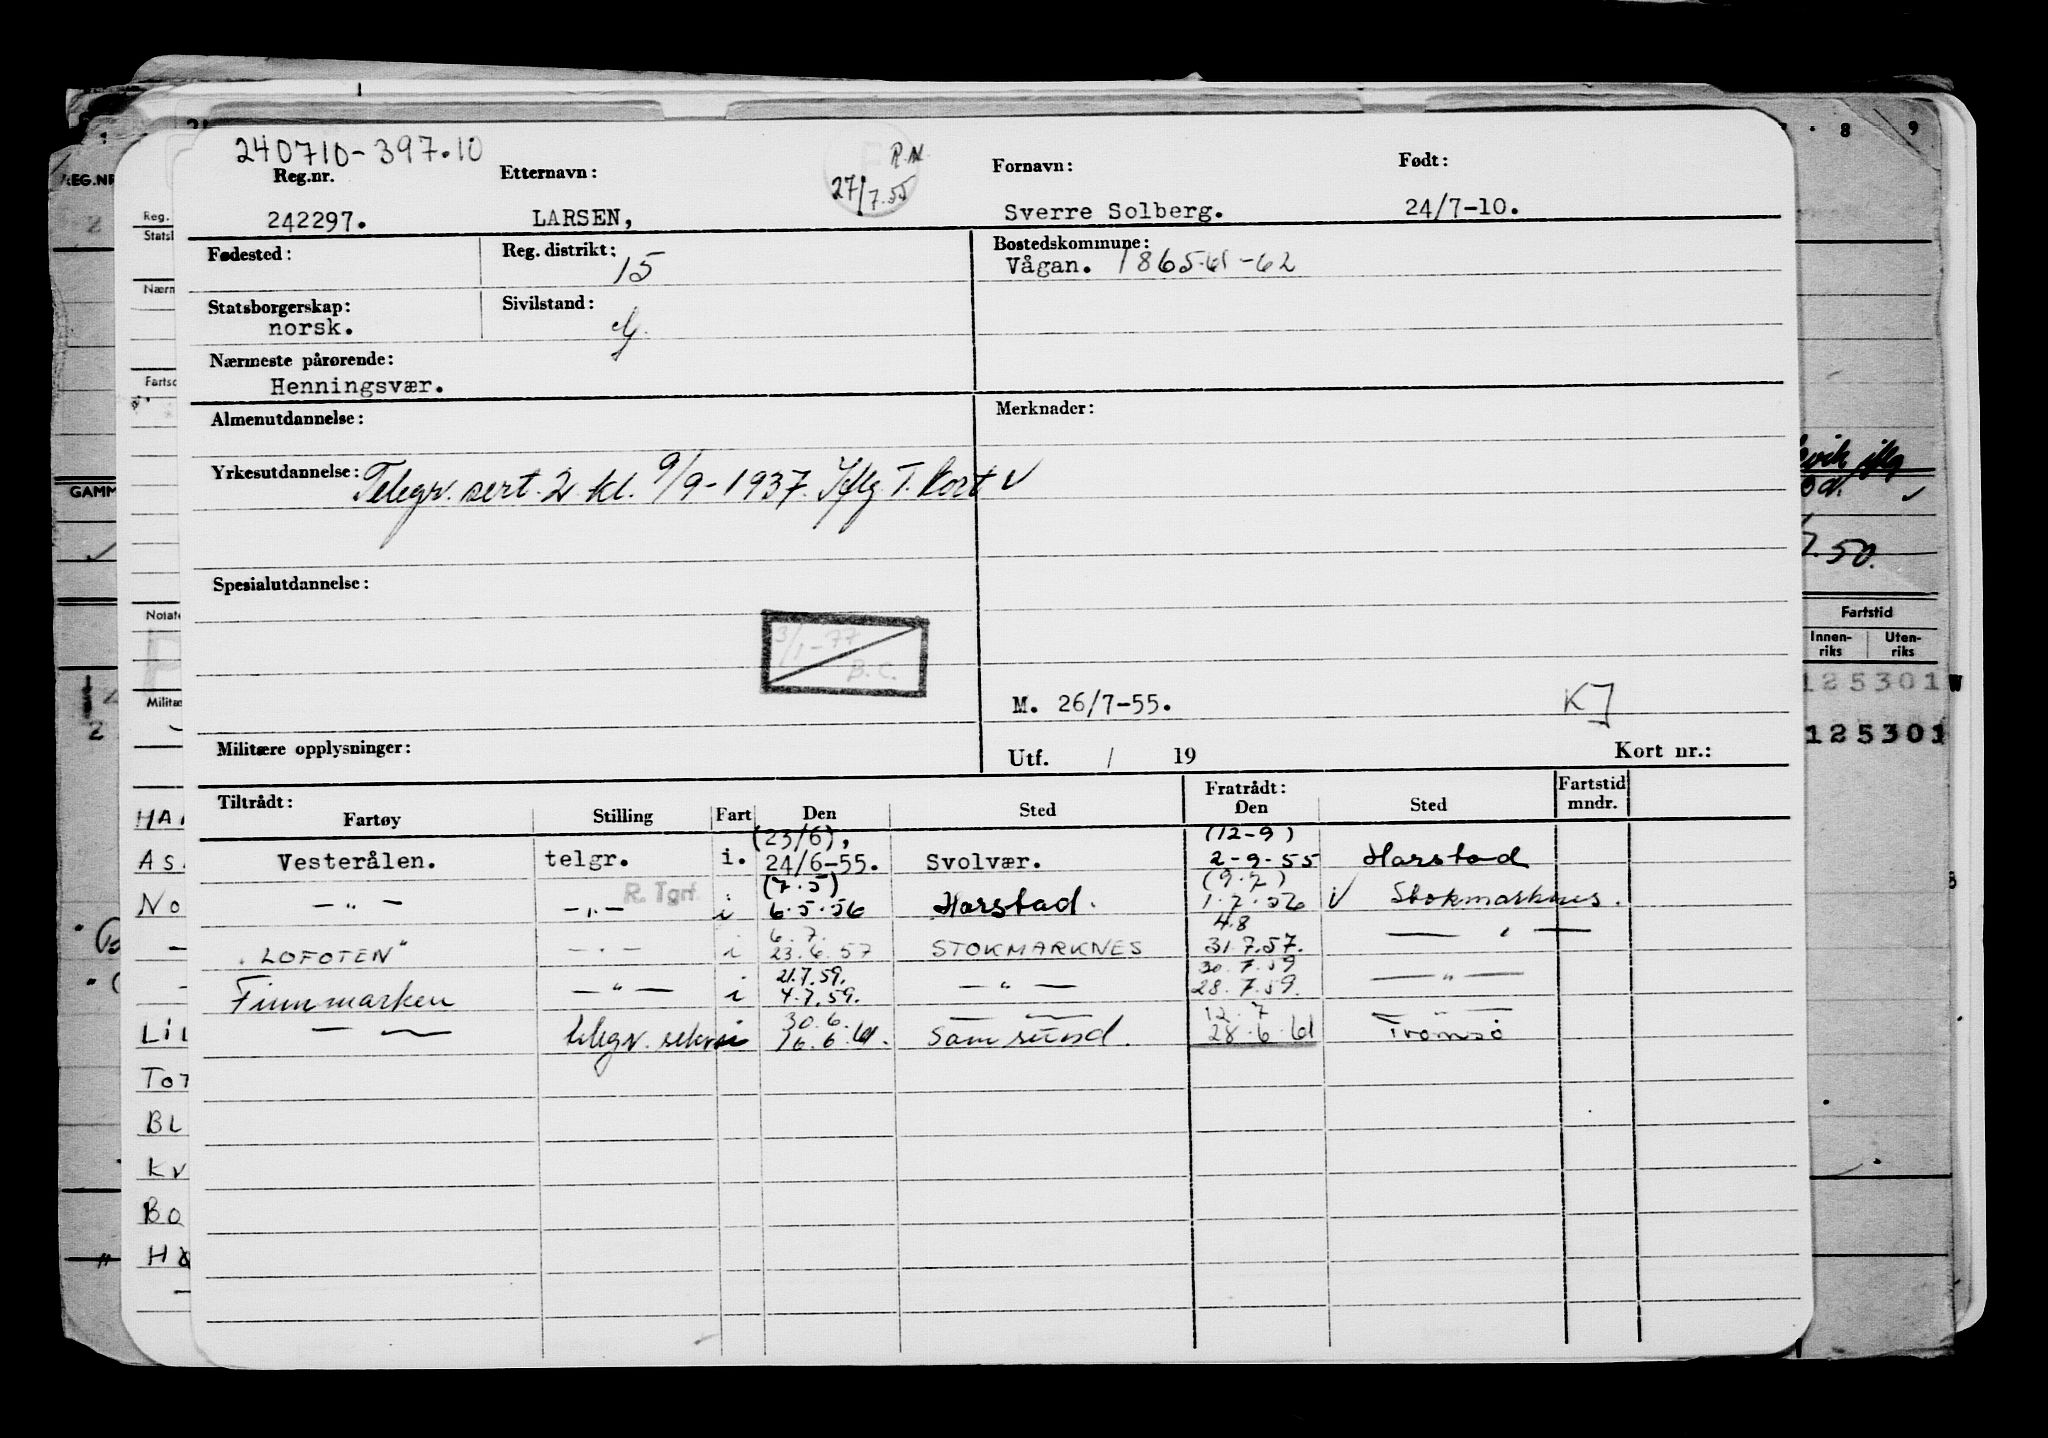 240710-397.10
Reg.nr. Etternavn: R.M. Fornavn: Født:
27/7.55
242297. LARSEN, Sverre Solberg. 24/7-10.
Fødested: Reg. distrikt: 15 Bostedskommune:
Vågan. 1865-61-62
Statsborgerskap: Sivilstand:
norsk. g.
Nærmeste pårørende:
Henningsvær.
Almenutdannelse: Merknader:
Yrkesutdannelse: Telegr. sert. 2 kl. 9/9-1937. Iflg T. Kort ✓
Spesialutdannelse:
3/1-77
B.C.
M. 26/7-55. KJ
Militære opplysninger: Utf. / 19 Kort nr.:
Tiltrådt: Fratrådt: Fartstid
Fartøy Stilling Fart Den Sted Den Sted mndr.
(23/6), (12-9)
Vesterålen. telgr. i. 24/6-55. Svolvær. 2-9-55 Harstad
R. Tgrf. (7.5) (9.7)
— " — — " — i 6.5.56 Harstad. 1.7.56 ✓ Stokmarknes.
6.7. 4.8
"LOFOTEN" — " — i 23.6.57 STOKMARKNES 31.7.57. — " —
21.7.59. 30.7.59
Finnmarken — " — i 4.7.59. — " — 28.7.59. — " —
30.6. 12.7 — " —
— " — telegr. i 16.6.61. 28.6.61 Tromsø
REG.NR
Reg.
Nærm
Fartso
GAMM
Notate
Militæ
As
No
Kv
Bo
8 9
.50.
Fartstid
Innen-
riks
Uten-
riks
125301
125301